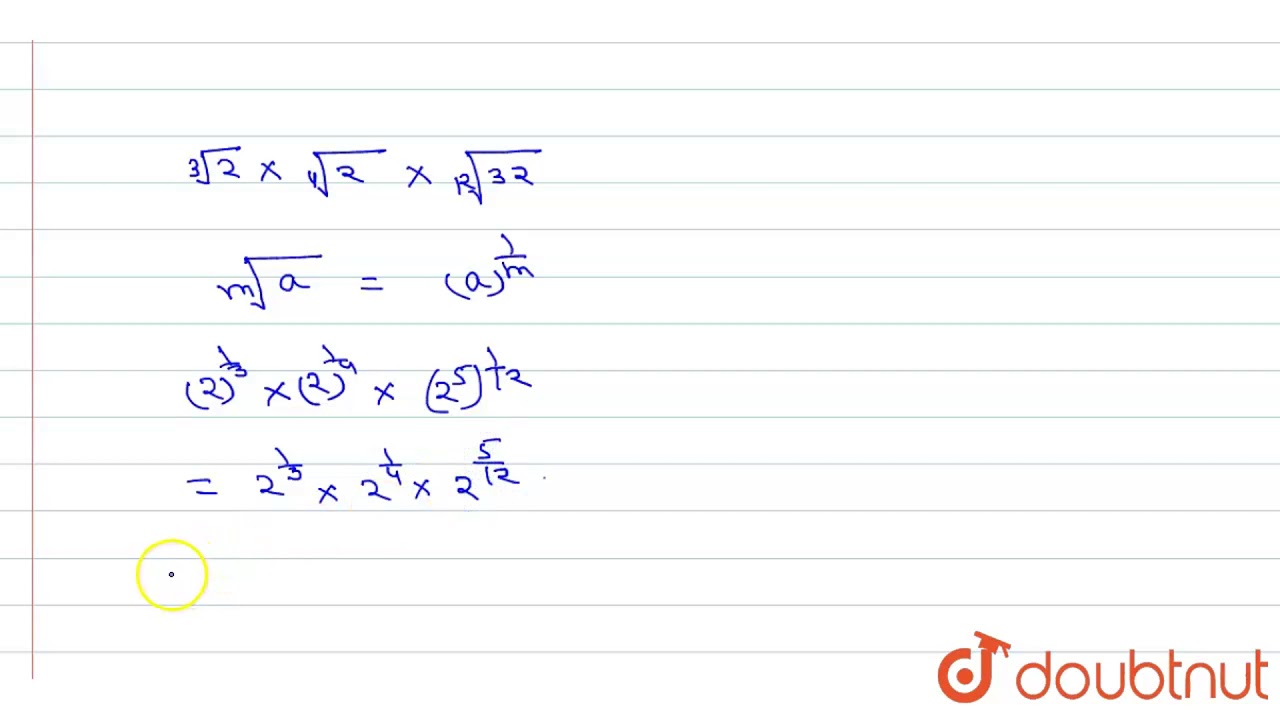 ∛2 × ∜2 × ¹²√32
ᵐ√a = (a)^(1/m)
(2)^(1/3) × (2)^(1/4) × (2^5)^(1/12)
= 2^(1/3) × 2^(1/4) × 2^(5/12)
doubtnut